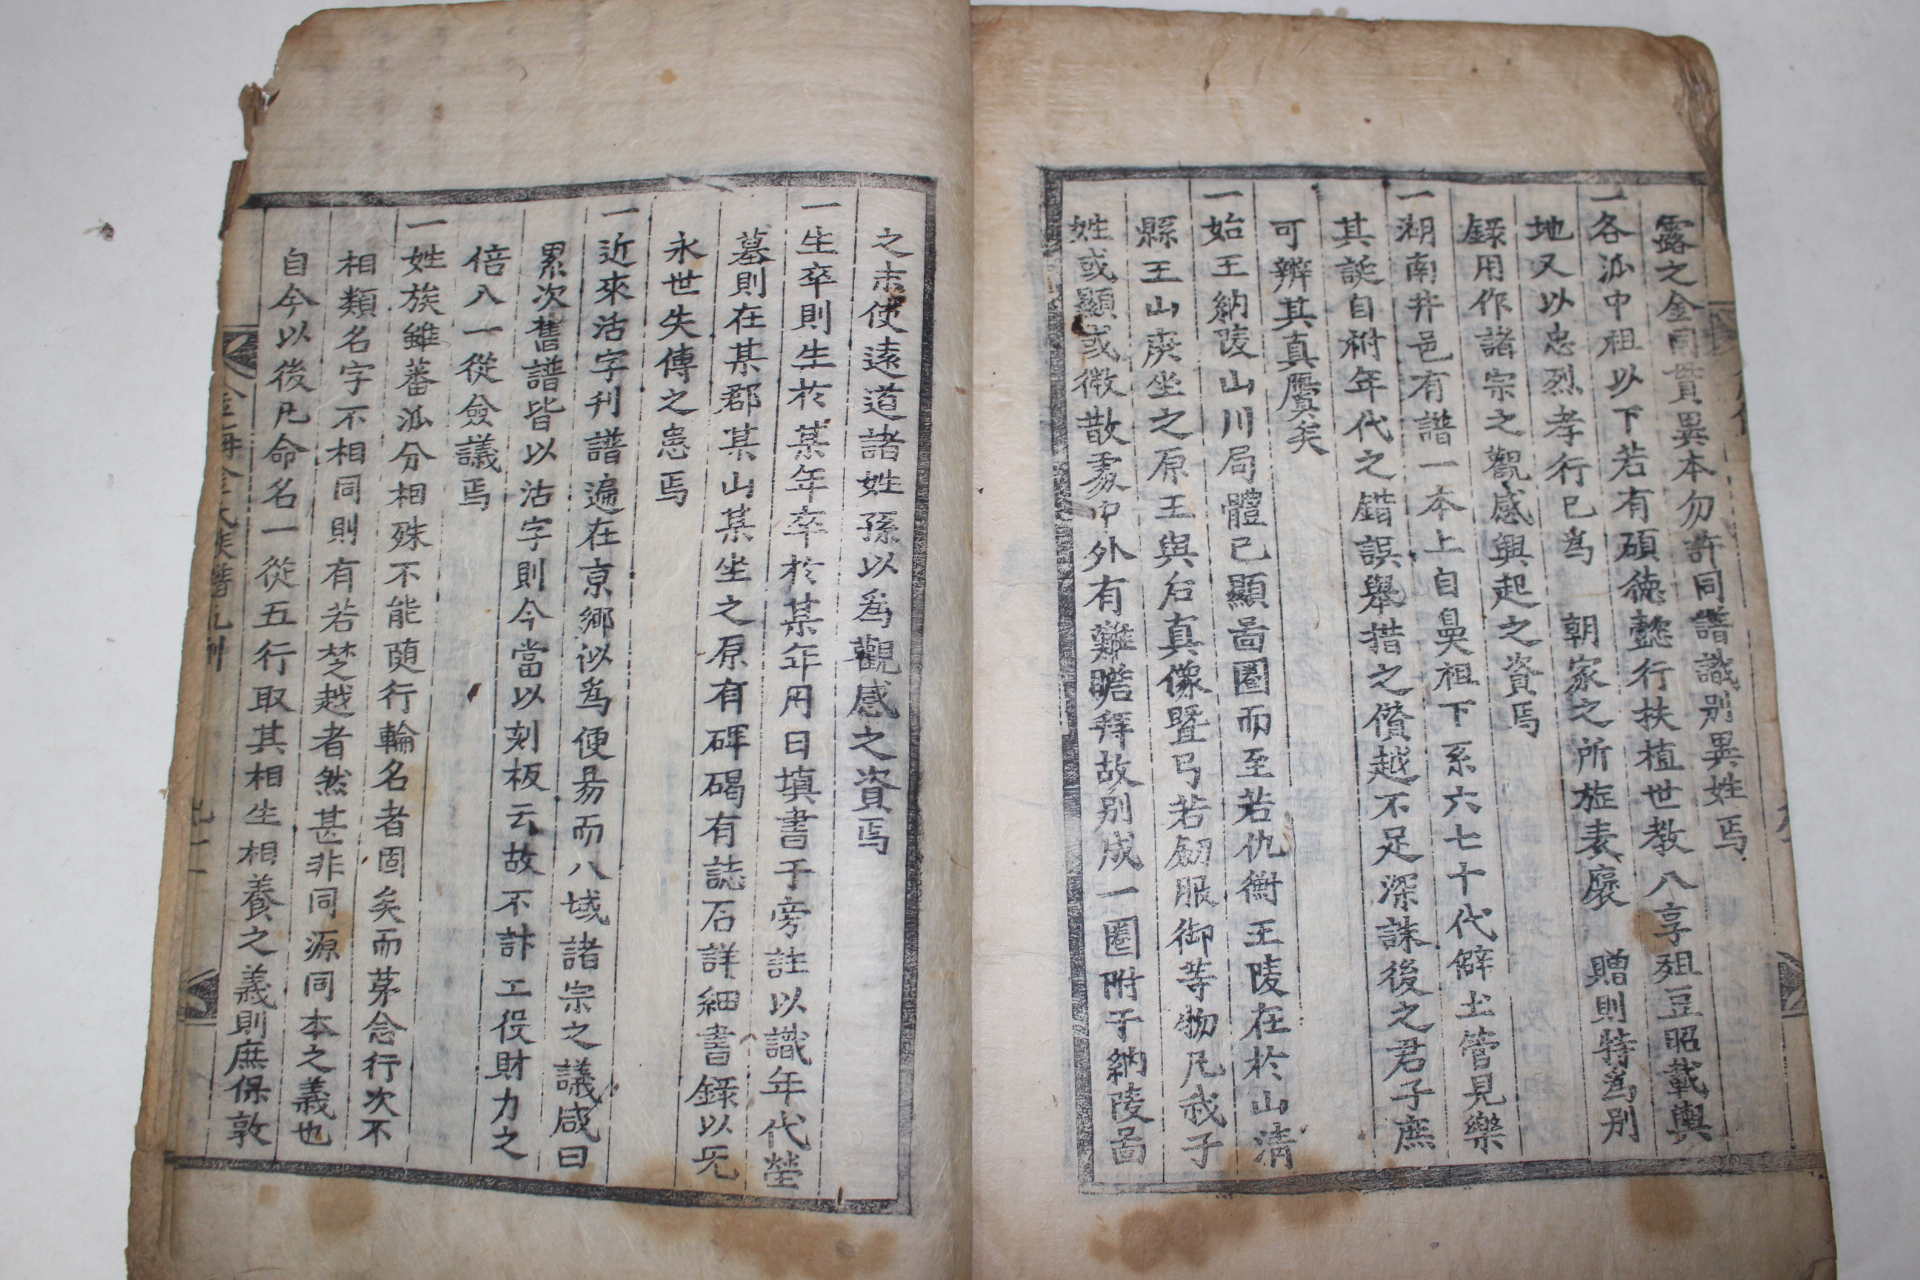 露之金同貫異本勿許同譜識別異姓焉
一各派中祖以下若有碩德懿行扶植世教八享俎豆昭載輿
地又以忠烈孝行已爲 朝家之所旌表褒 贈則特爲別
錄用作諸宗之觀感興起之資焉
一湖南井邑有譜一本上自鼻祖下系六七十代僻土管見樂
其誕自祔年代之錯誤舉措之僣越不足深誅後之君子庶
可辨其真贋矣
一始王納陵山川局體已顯啚圈而至若仇衡王陵在於山淸
縣王山庚坐之原王與后真像曁弓若劒服御等物凡我子
姓或顯或微散處中外有難瞻拜故別成一圈附于納陵啚
之末使遠道諸姓孫以爲觀感之資焉
一生卒則生於某年卒於某年用日填書于旁註以識年代塋
墓則在某郡某山某坐之原有碑碣有誌石詳細書錄以旡
永世失傳之患焉
一近來活字刊譜遍在京鄉似爲便易而八域諸宗之議咸曰
累次舊譜皆以活字則今當以刻板云故不計工役財力之
倍八一從僉議焉
一姓族雖蕃派分相殊不能随行輪名者固矣而苐念行次不
相類名字不相同則有若楚越者然甚非同源同本之義也
自今以後凡命名一從五行取其相生相養之義則庶保敦
金海金氏族譜凡例